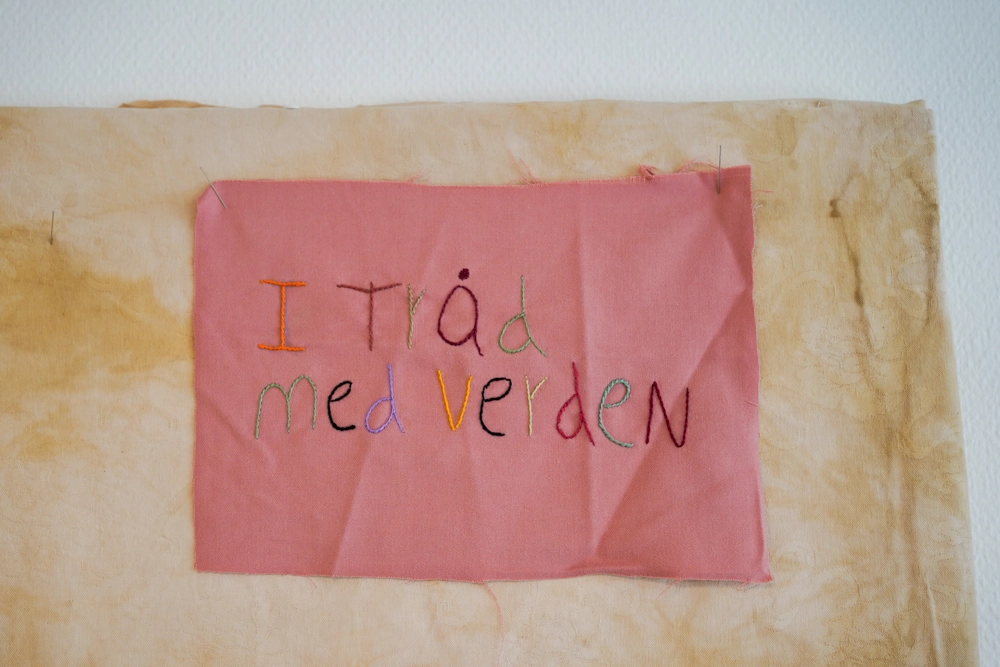 I Tråd
med verdeN